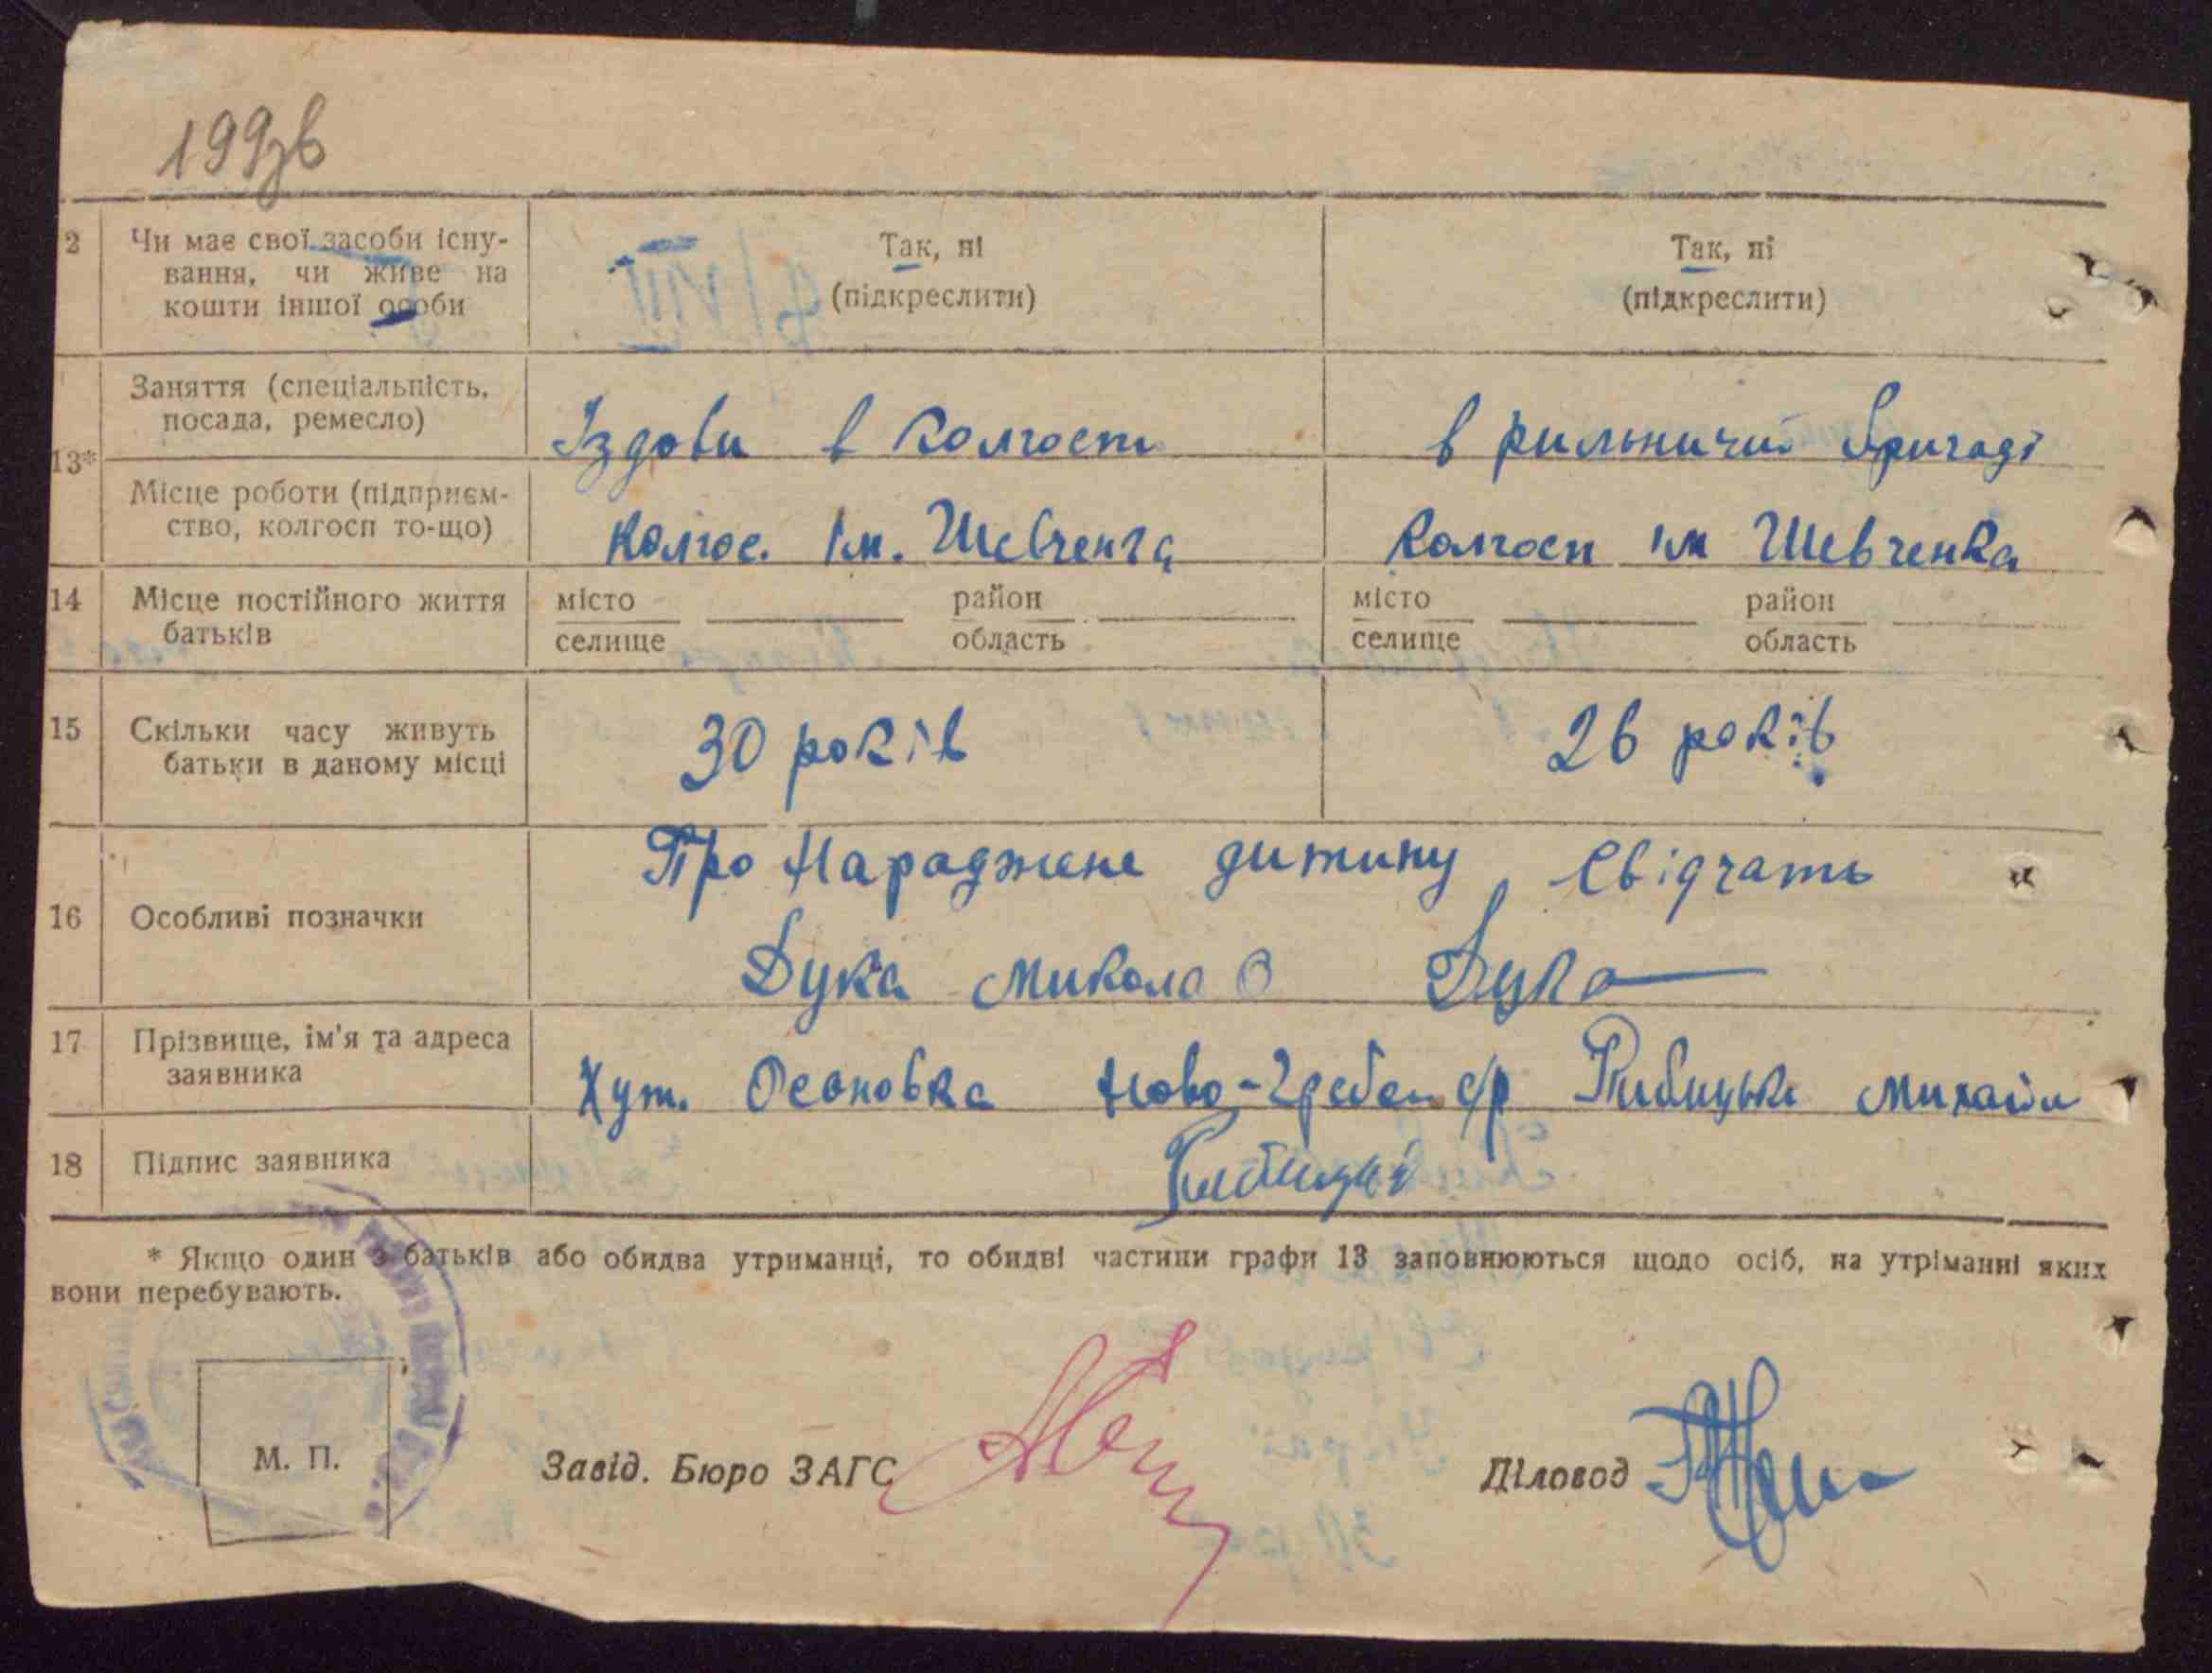 199зв
2 Чи має свої засоби існу- Так, ні Так, ні
вання, чи живе на (підкреслити) (підкреслити)
кошти іншої особи
Заняття (спеціальність,
посада, ремесло) Їздови в колгоспі в рильничий бригаді
13*
Місце роботи (підприєм-
ство, колгосп то-що) Колгос. Ім. Шевченка Колгосп ім Шевченка
14 Місце постійного життя місто район місто район
батьків селище область селище область
15 Скільки часу живуть 30 років 26 років
батьки в даному місці
Про Народжене дитину свідчать
16 Особливі позначки
Дука Микола О Дука
17 Прізвище, ім'я та адреса
заявника Хут. Осоновка Ново-Гребел с/р Рибицьки Михайло
18 Підпис заявника Рибицькі
* Якщо один з батьків або обидва утриманці, то обидві частини графи 13 заповнюються щодо осіб, на утріманні яких
вони перебувають.
М. П. Завід. Бюро ЗАГС Діловод